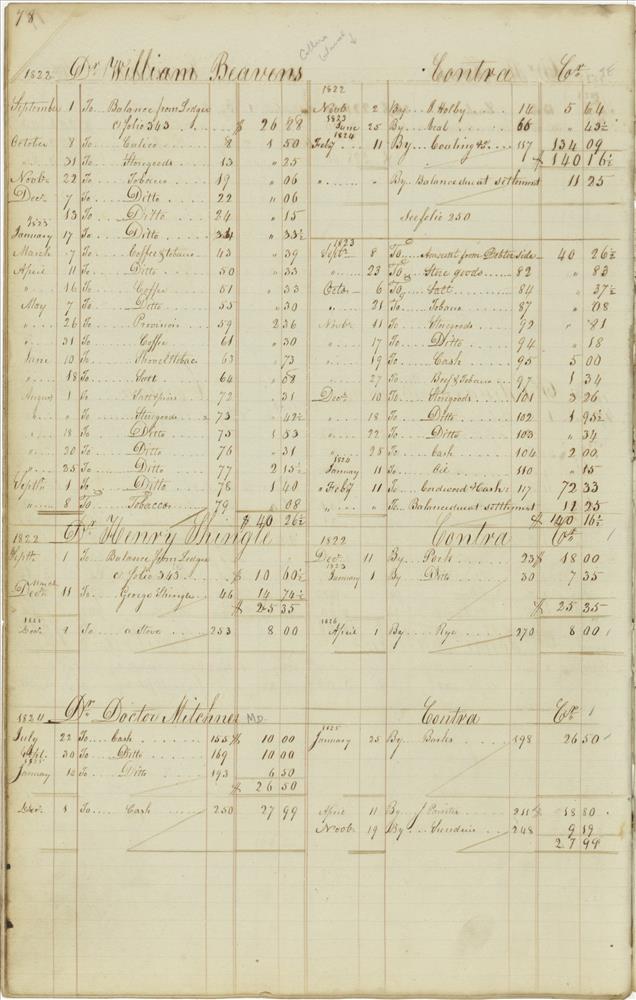 78
1822 Dr William Beavens
September 1 To Balance from Ledger
a folio 343 $ 26 28
October 8 To Calico 8 1 50
" 31 To Storegoods 13 " 25
Novbr 22 To Tobacco 19 " 06
Decr 7 To Ditto 22 " 06
13 To Ditto 24 " 15
1823
January 17 To Ditto 34 " 33½
March 7 To Coffee & tobacco 43 " 39
April 11 To Ditto 50 " 33
" 16 To Coffee 51 " 33
May 7 To Ditto 55 " 30
" 26 To Provisions 59 2 36
" 31 To Coffee 61 " 30
June 10 To 63 " 73
" 18 To 64 " 58
August 1 To 72 " 31
" " To Storegoods 73 " 42½
" 18 To Ditto 75 1 53
" 20 To Ditto 76 " 31
" 25 To Ditto 77 2 15½
Septbr 1 To Ditto 78 1 40
" 8 To Tobacco 79 " 08
$ 40 26½
Contra Cr
1822
Novbr 2 By Holby 14 5 64
1823
June 25 By Veal 66 " 43½
1824
Feby 11 By Coaling &c. 117 134 09
$ 140 16½
" " By Balance due at settlement 11 25
See folio 250
1823
Septr 8 To Amount from Debtor side 40 26½
" 23 To Store goods 82 " 83
Octbr 6 To Salt 84 " 37½
" 21 To Tobacco 87 " 08
Novbr 11 To Storegoods 92 " 81
" 17 To Ditto 94 " 18
" 19 To Cash 95 5 00
" 27 To Beef & Tobacco 97 1 34
Decr 10 To Storegoods 101 3 26
" 18 To Ditto 102 1 95½
" 22 To Ditto 103 " 34
" 28 To Cash 104 2 00
1824
January 11 To 110 " 15
" Feby 11 To Cordwood & Cash 117 72 33
" " To Balance due at settlement 11 25
$ 140 16½
1822 Dr Henry Shingle
Septbr 1 To Balance from Ledger
a folio 343 $ 10 60½
March
Decr 11 To George Shingle 46 14 74½
$ 25 35
Decr To a Stove 253 8 00
1822 Contra Cr
Decr 11 By Pork 23 $ 18 00
1823
January 1 By Ditto 30 7 35
$ 25 35
1826
April 1 By Rye 270 8 00
1824 Dr Doctor Mitchner MD.
July 22 To Cash 155 $ 10 00
Sept. 30 To Ditto 169 10 00
1825
January 12 To Ditto 193 6 50
$ 26 50
Decr 1 To Cash 250 27 99
Contra Cr
1825
January 25 By Barks 198 26 50
April 11 By 211 $ 18 80
Novbr 19 By Sundries 248 9 19
27 99